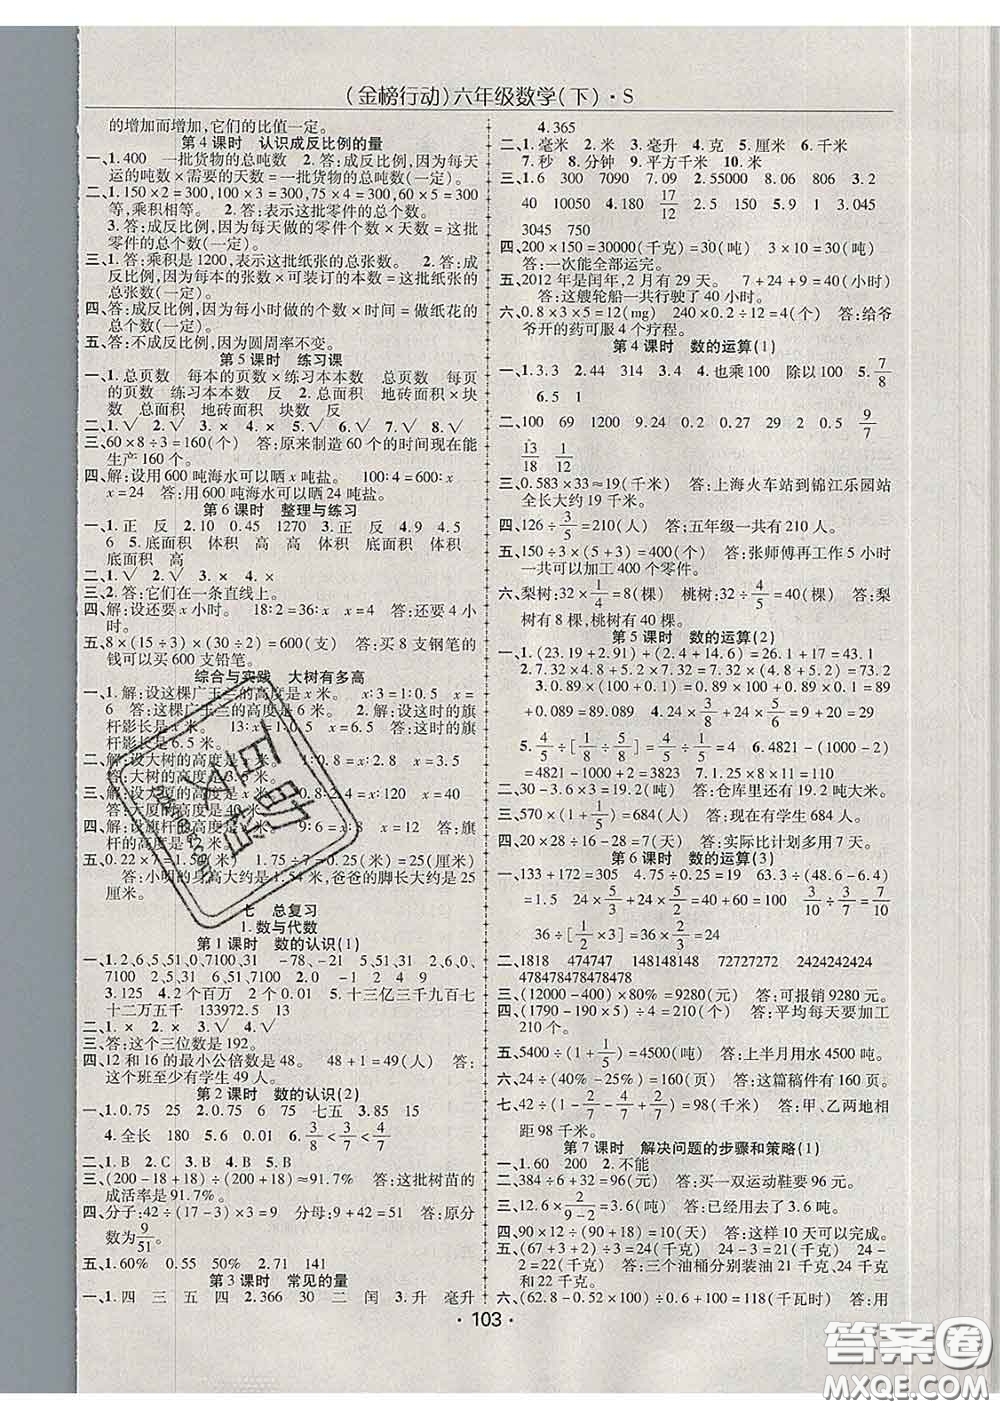 (金榜行动)六年级数学(下)·S
的增加而增加,它们的比值一定。
第4课时 认识成反比例的量
一、1.400 一批货物的总吨数 2.答:成反比例,因为每天
运的吨数×需要的天数=一批货物的总吨数(一定)。
二、1.150×2=300,100×3=300,75×4=300,60×5=300
等,乘积相等。 2.答:表示这批零件的总个数。
3.答:成反比例,因为每天做的零件个数×天数=这批
零件的总个数(一定)。
三、1.答:乘积是1200,表示这批纸张的总张数。 2.答:成
反比例,因为每本的张数×可装订的本数=这批纸张的
总张数(一定)。
四、答:成反比例,因为每小时做的个数×时间=做纸花的
总个数(一定)。
五、答:不成反比例,因为圆周率不变。
第5课时 练习课
一、1.总页数 每本的页数×练习本本数 总页数 每页
的页数 练习本本数 反 2.总面积 地砖面积×块
数 总面积 地砖面积 块数 反
二、1.√ 2.× 3.√ 4.× 5.√ 6.√ 7.√ 8.√
三、60×8÷3=160(个) 答:原来制造60个的时间现在能
生产160个。
四、解:设用600吨海水可以晒x吨盐。 100∶4=600∶x
x=24 答:用600吨海水可以晒24吨盐。
第6课时 整理与练习
一、1.正 反 2.10 0.45 1270 3.正 4.反
5. 5.底面积 体积 高 高 体积 底面积 体积
底面积 高
二、1.√ 2.√ 3.× 4.×
三、2.答:它们在一条直线上。
四、解:设还要x小时。 18∶2=36∶x x=4 答:还要4小
时。
五、8×(15÷3)×(30÷2)=600(支) 答:买8支钢笔的
钱可以买600支铅笔。
综合与实践 大树有多高
一、1.解:设这棵广玉兰的高度是x米。 x∶3=1∶0.5 x=
6 答:这棵广玉兰的高度是6米。 2.解:设这时的旗
杆影长是x米。 13∶x=1∶0.5 x=6.5 答:这时的旗
杆影长是6.5米。
二、解:设大树的高度是x米。 1∶0.8=x∶2.8 x=3.5
答:大树的高度是3.5米。
三、解:设大厦的高度是x米。 0.8∶2.4=x∶120 x=40
答:大厦的高度是40米。
四、解:设旗杆的高度是x米。 9∶6=x∶8 x=12 答:旗
杆的高度是12米。
五、0.22×7=1.54(米) 1.75÷7=0.25(米)=25(厘米)
答:小明的身高大约是1.54米,爸爸的脚长大约是25
厘米。
七 总复习
1.数与代数
第1课时 数的认识(1)
一、1.2,6,5,51,0,7100,31 -78,-21 5,51,2,6,0,
7100 5,51,7100,31 2.0 -1 2 4 9
3.125 4.2个百万 2个0.01 5.十三亿三千九百七
十二万五千 133972.5 13
二、1.× 2.× 3.√ 4.√
三、答:这个三位数是192。
四、12和16的最小公倍数是48。 48+1=49(人) 答:
这个班至少有学生49人。
第2课时 数的认识(2)
一、1.0.75 25 2.0.75 6 75 七五 3.85 15
4.全长 180 5.6 0.6 6. 3/8<3/7<4/7
二、1.B 2.C 3.A 4.B
三、(200-18+18)÷(200+18)≈91.7% 答:这批树苗的
成活率是91.7%。
四、分子:42÷(17-3)×3=9 分母:9+42=51 答:原分
数为9/51。
五、1.60% 0.55 50% 2.71 141
第3课时 常见的量
一、1.四 三 五 四 2.366 30 二 闰 3.升 毫升
4.365
二、1.毫米 2.米 3.毫升 4.克 5.厘米 6.千米
7.秒 8.分钟 9.平方千米 10.米
三、1.6 300 7090 7.09 2.55000 8.06 806 3.2
40 10050 4.180 17/12 5.150 2.5 1.9 3.045
3045 750
四、200×150=30000(千克)=30(吨) 3×10=30(吨)
答:一次能全部运完。
五、2012年是闰年,2月有29天。 7+24+9=40(小时)
答:这艘轮船一共行驶了40小时。
六、0.8×3×5=12(mg) 240×0.2÷12=4(个) 答:给爷
爷开的药可服4个疗程。
第4课时 数的运算(1)
一、1.3.3 2.44 314 3.4 4.也乘100 除以100 5.7/8
6.5 1
二、100 69 1200 9.24 0.2 0.27 29 2 0.5 9/7
13/18 1/12
三、0.583×33≈19(千米) 答:上海火车站到锦江乐园站
全长大约19千米。
四、126÷3/5=210(人) 答:五年级一共有210人。
五、150÷3×(5+3)=400(个) 答:张师傅再工作5小时
一共可以加工400个零件。
六、梨树:32×1/4=8(棵) 桃树:32÷4/5=40(棵) 答:梨
树有8棵,桃树有40棵。
第5课时 数的运算(2)
一、1.(23.19+2.91)+(2.4+14.6)=26.1+17=43.1
2.7.32×4.8+5.2×7.32=7.32×(4.8+5.2)=73.2
3.8.9×10+0.089=89
+0.089=89.089 4.24×3/8+24×5/6=9+20=29
5.4/5÷[1/8÷5/8]=4/5÷1/5=4 6.4821-(1000-2)
=4821-1000+2=3823 7.1.25×(8+0.8)=11
二、30-3.6×3=19.2(吨) 答:仓库里还有19.2吨大米。
三、570×(1+1/5)=684(人) 答:现在有学生684人。
四、20×28÷16-28=7(天) 答:实际比计划多用7天。
第6课时 数的运算(3)
一、133+172=305 4.75÷0.25=19 63.3÷(48.6-6.4)
=1.5 24×5/3+24×5/2=40+60=100 36÷[1/2×3]=24
36÷[1/2×3]=36÷3/2=24
二、1818 474747 148148148 723723 2424242424
478478478478478
三、(12000-400)×80%=9280(元) 答:可报销9280元。
四、(1790-190×5)÷4=210(个) 答:平均每天要加工
210个。
五、5400÷(1+1/5)=4500(吨) 答:上半月用水4500吨。
六、24÷(40%-1/4)=160(页) 答:这篇稿件有160页。
七、42÷(1-4/7)=98(千米) 答:甲、乙两地相
距98千米。
第7课时 解决问题的步骤和策略(1)
一、1.60 200 2.不能
二、384÷6+32=96(元) 答:买一双运动鞋要96元。
三、12.6×2/(9-2)=3.6(吨) 答:已经用去了3.6吨。
四、90×12÷(90+18)=10(天) 答:这样10天可以完成。
五、(67+3+2)÷3=24(千克) 24-3=21(千克) 24-
2=22(千克) 答:三个油桶分别装油24千克、21千克
和22千克。
六、(62.8-0.52×100)÷0.6+100=118(千瓦时) 答:用
·103·
答案圈
MXQE.COM